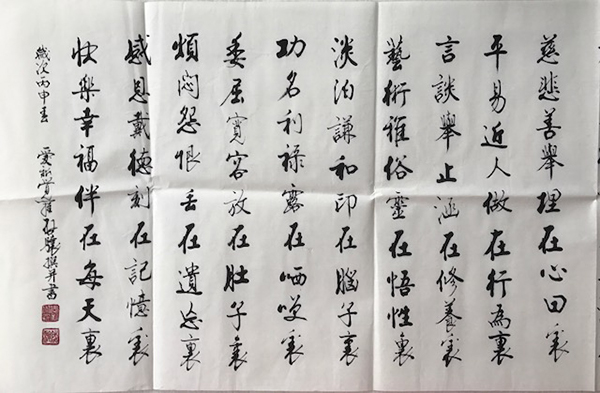 慈悲善舉埋在心田裏
平易近人做在行為裏
言談舉止涵在修養裏
藝術雅俗靈在悟性裏
淡泊謙和印在腦子裏
功名利祿露在哂咲裏
委屈寬容放在肚子裏
煩悶怨恨丟在遺忘裏
感恩戴德刻在記憶裏
快樂幸福伴在每天裏
歲次丙申春 愛新覺羅 撰并書